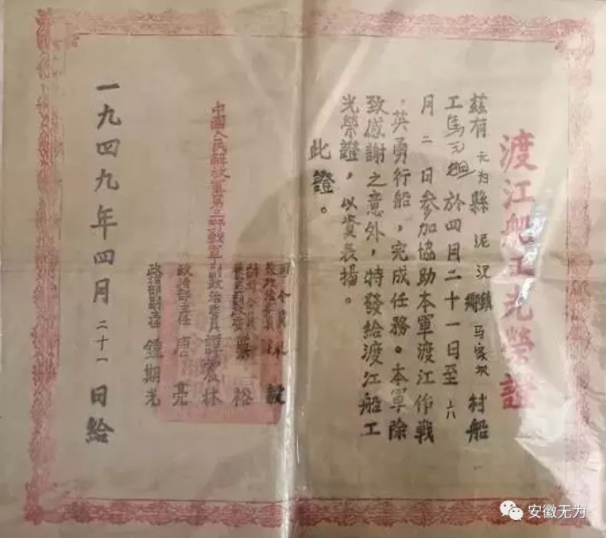 渡江船工光榮證
茲有无为縣泥汊鎮马家村船
工馬於四月二十一日至六
月二日參加協助本軍渡江作戰
，英勇行船，完成任務。本軍除
致感謝之意外，特發給渡江船工
光榮證，以資表揚。
此證。
中國人民解放軍第三野戰軍
司令員 毅
粟裕
副政治委員譚震林
政治部主任唐亮
政治部副主任鍾期光
一九四九年四月二十一日給
安徽无为